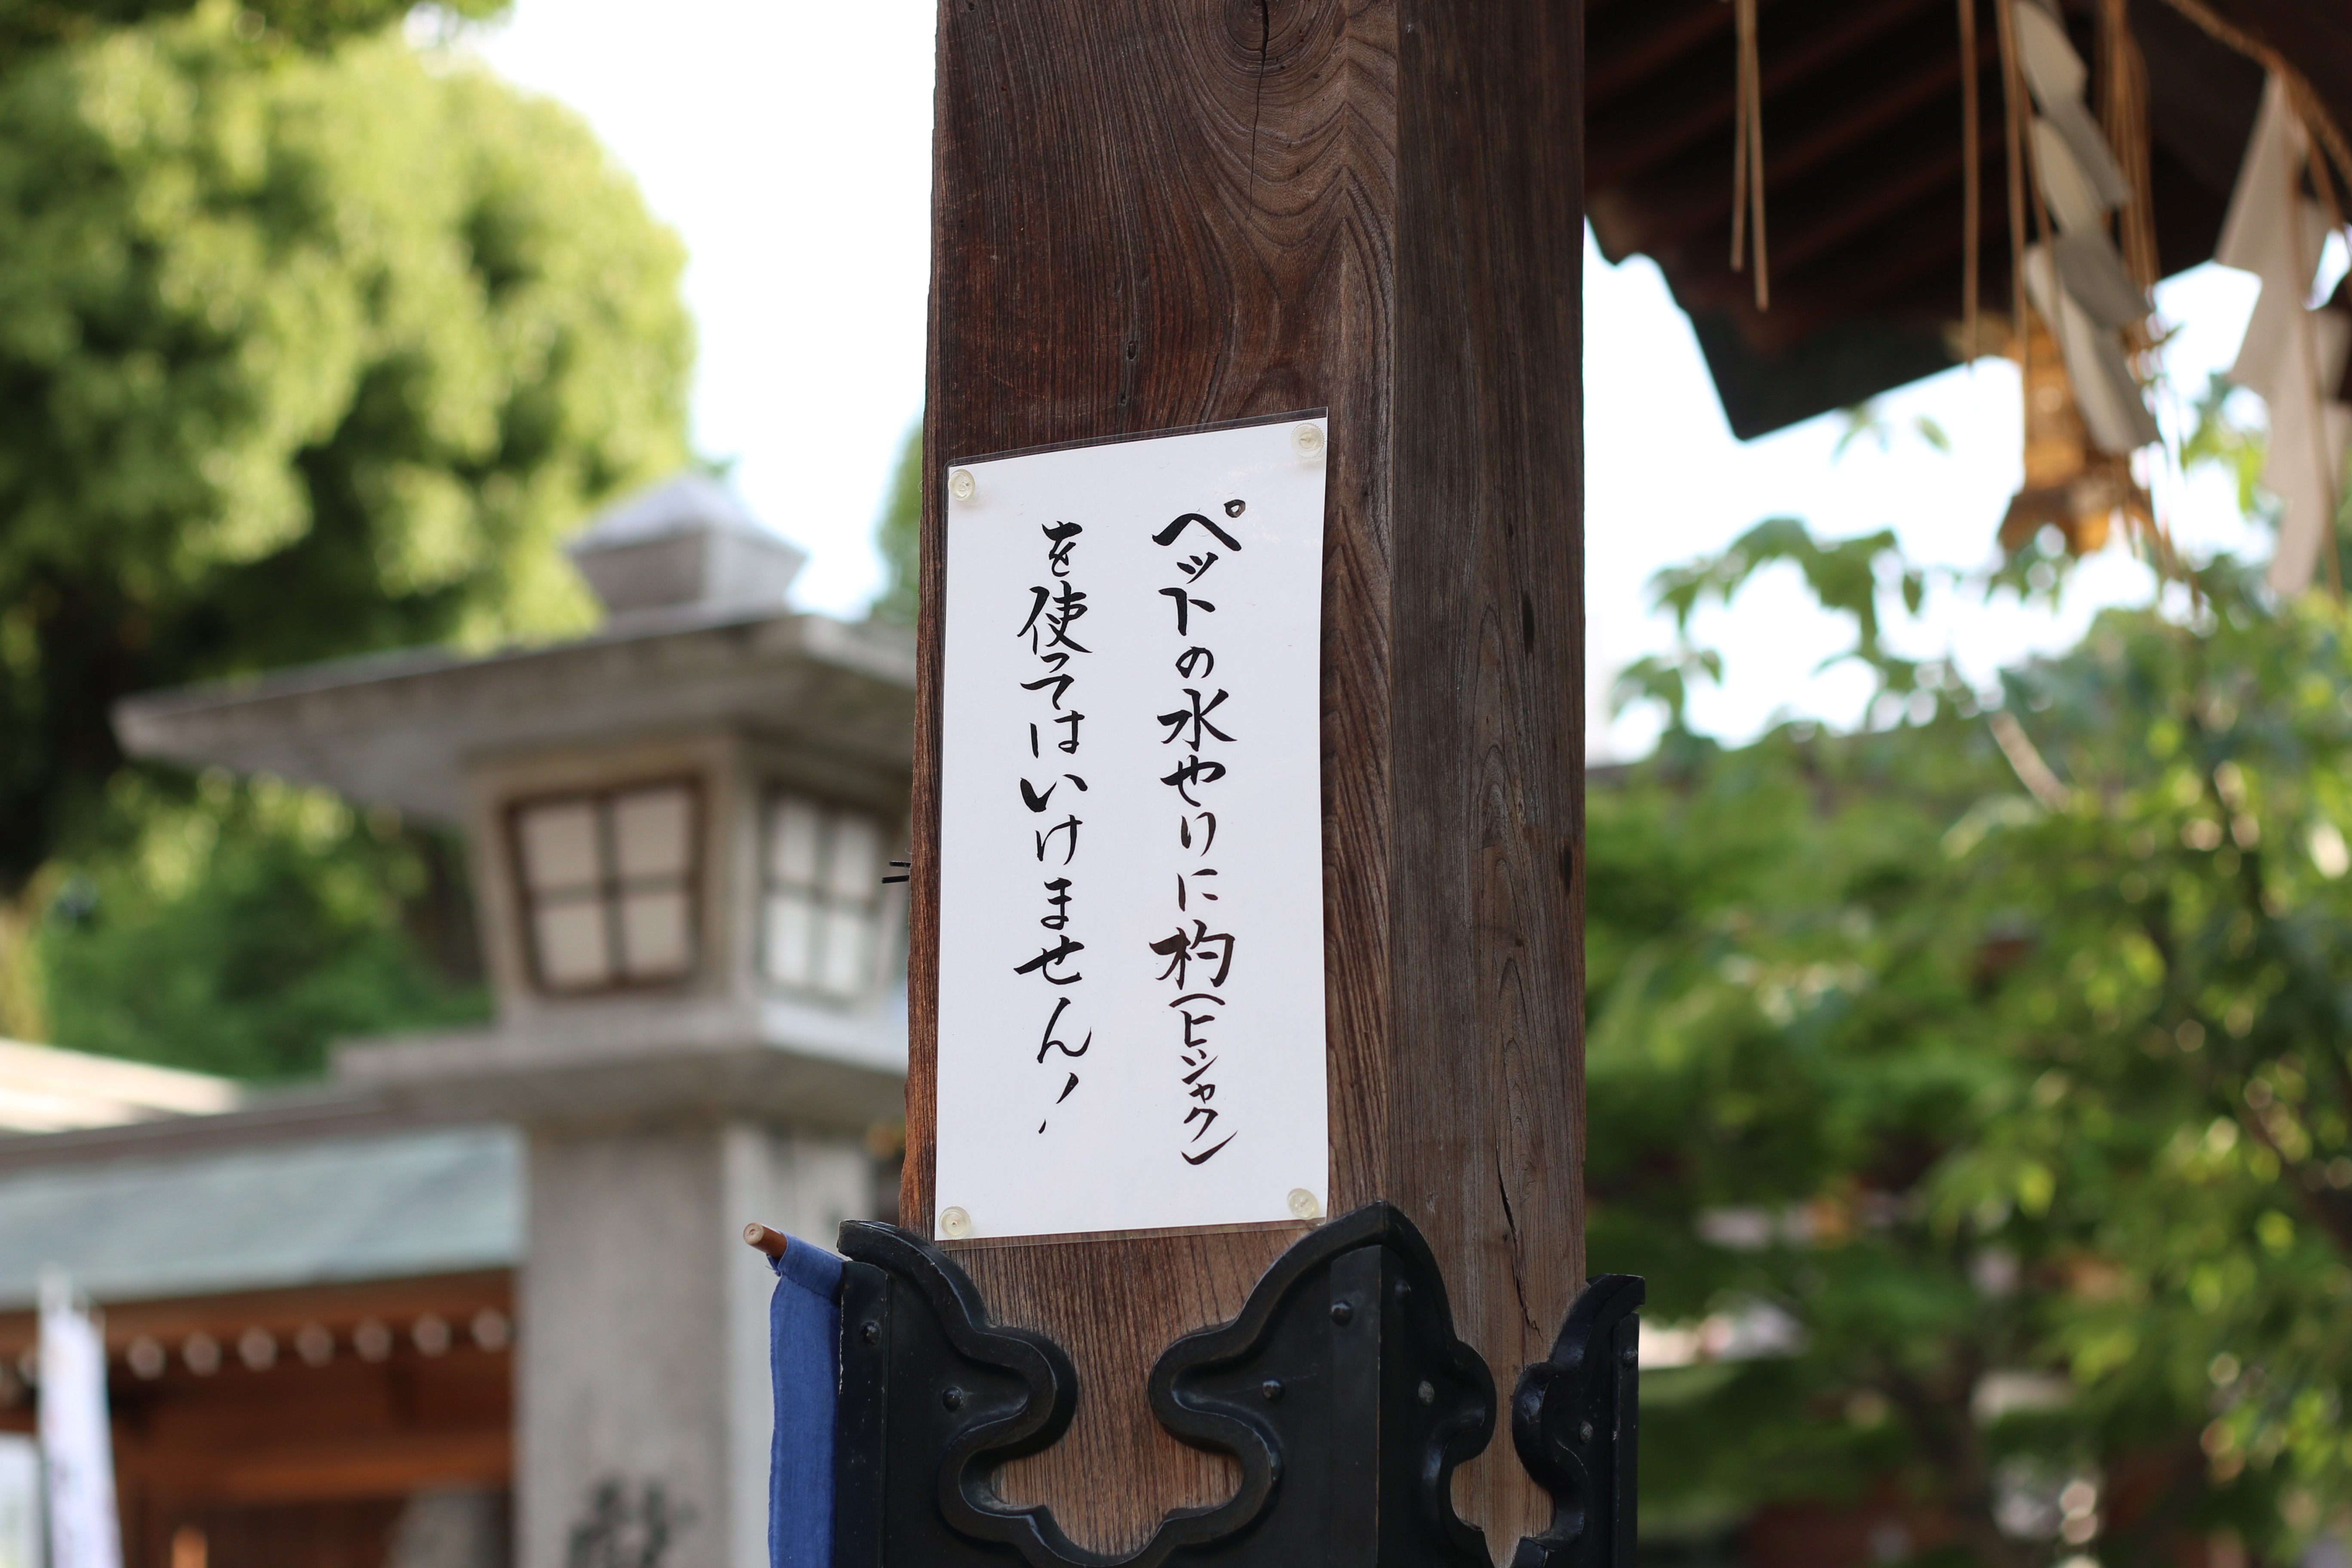 ペットの水やりに杓(ヒシャク)
を使ってはいけません!